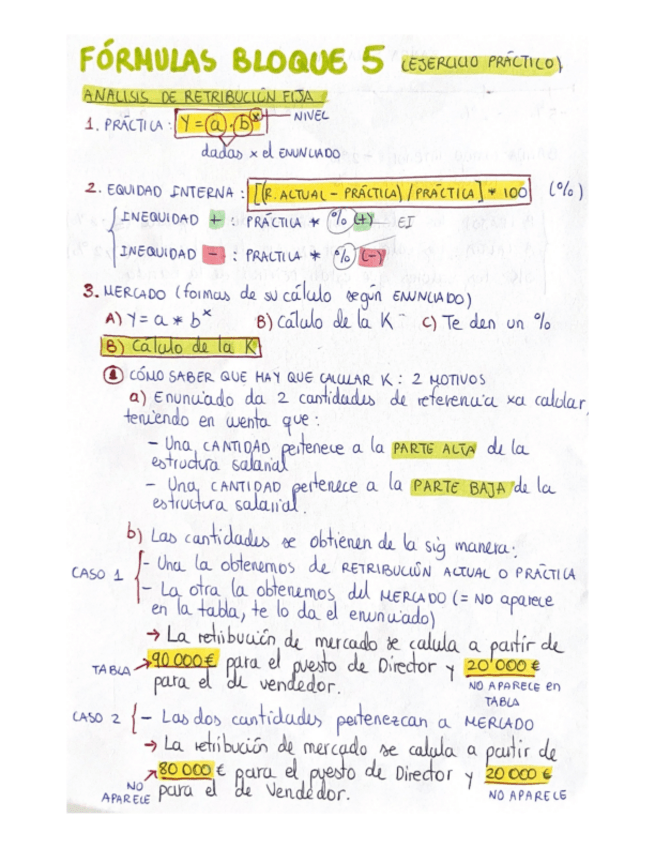 FÓRMULAS BLOQUE 5 (EJERCICIO PRÁCTICO)
ANALISIS DE RETRIBUCIÓN FIJA
1. PRÁCTICA: Y = a · b^x NIVEL
dadas x el ENUNCIADO
2. EQUIDAD INTERNA: [(R. ACTUAL - PRÁCTICA) / PRÁCTICA] * 100 (%)
INEQUIDAD + : PRÁCTICA * % (+) EI
INEQUIDAD - : PRACTICA * % (-)
3. MERCADO (formas de su cálculo según ENUNCIADO)
A) Y = a * b^x B) Cálculo de la K C) Te den un %
B) Cálculo de la K
1 CÓMO SABER QUE HAY QUE CALCULAR K: 2 MOTIVOS
a) Enunciado da 2 cantidades de referencia xa calcular,
teniendo en cuenta que:
- Una CANTIDAD pertenece a la PARTE ALTA de la
estructura salarial
- Una CANTIDAD pertenece a la PARTE BAJA de la
estructura salarial.
b) Las cantidades se obtienen de la sig manera:
CASO 1 - Una la obtenemos de RETRIBUCIÓN ACTUAL O PRÁCTICA
- La otra la obtenemos del MERCADO (= NO aparece
en la tabla, te lo da el enunciado)
→ La retribución de mercado se calcula a partir de
TABLA → 90 000 € para el puesto de Director y 20'000 €
para el de vendedor. NO APARECE en
TABLA
CASO 2 - Las dos cantidades pertenezcan a MERCADO
→ La retribución de mercado se calcula a partir de
80 000 € para el puesto de Director y 20 000 €
NO APARECE para el de Vendedor. NO APARECE